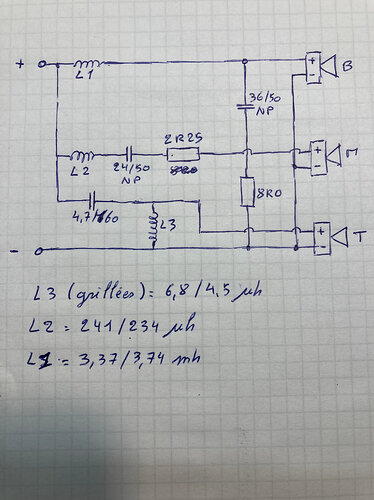 +
L1
+
-
B
36/50
NP
2R25
+
-
M
L2
24/50
NP
8R0
4,7/160
L3
+
-
T
-
L3 (grillées) = 6,8/4,5 µh
L2 = 241/234 µh
L1 = 3,37/3,74 mh